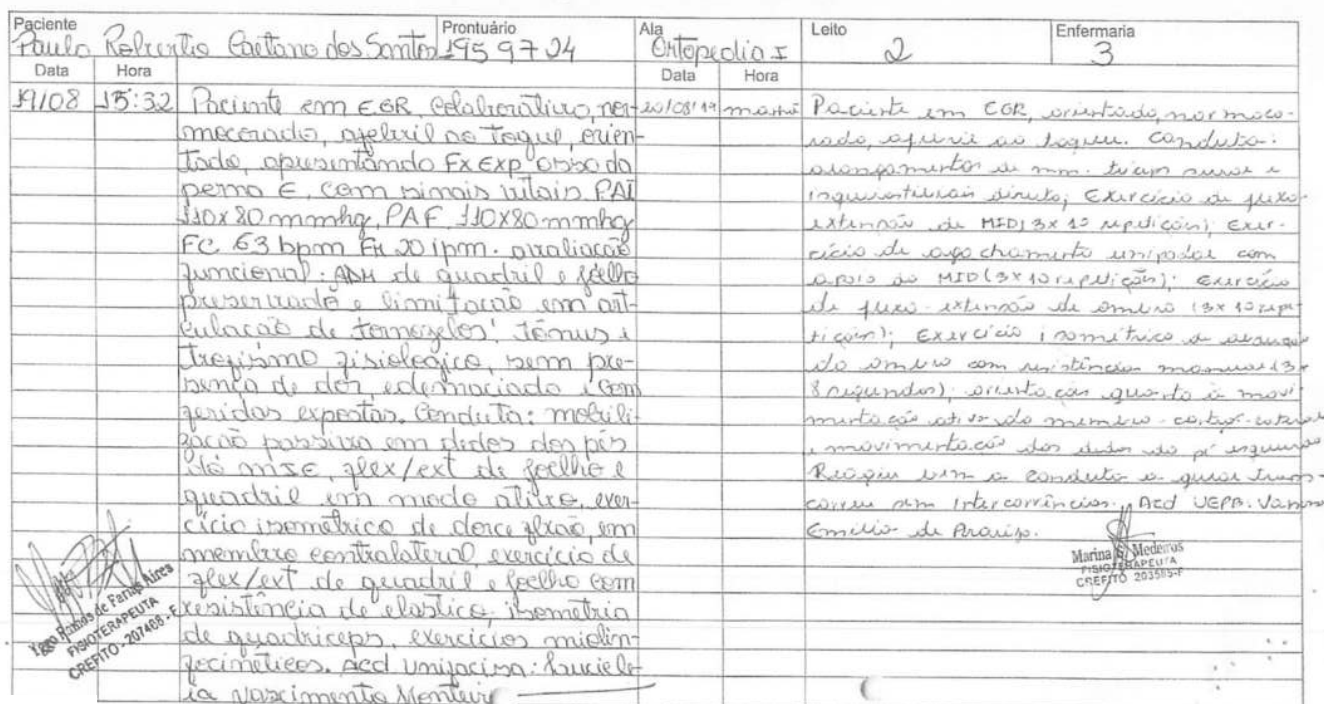 Paciente Prontuário Ala Leito Enfermaria
Paulo Roberto Caetano dos Santos 1959724 Ortopedia I 2 3
Data Hora Data Hora
19/08 15:32 Paciente em EGR, colaborativo, nor-
mocorado, afebril ao toque, orien-
tado, apresentando Fx Exp osso da
perna E, com sinais vitais PAI
110x80 mmhg, PAF 110x80 mmhg
FC 63 bpm FR 20 ipm. avaliação
funcional: ADM de quadril e joelho
preservado e limitação em arti-
culação de tornozelos! tônus e
trofismo fisiológico, sem pre-
sença de dor, edemaciado e com
feridas expostas. Conduta: mobili-
zação passiva em dedos dos pés
do MIE, flex/ext de joelho e
quadril em modo ativo, exer-
cício isométrico de dorce flexão, em
membro contralateral exercício de
flex/ext de quadril e joelho com
resistência de elastico, isometria
de quadriceps, exercícios miolin-
focinéticos. Acd unifacisa:
Nascimento Monteiro
FISIOTERAPEUTA
CREFITO - 207468-F
20/08/19 manhã Paciente em EGR, orientado, normoco-
rado, afebril ao toque. Conduta:
alongamentos de mm. tríceps sural e
isquiostibiais direito; Exercício de flexo
extensão de MID (3x 10 repetições); Exer-
cício de agachamento unipodal com
apoio do MID (3x10 repetições); Exercício
de flexo-extensão de ombro (3x 10 repe
tições); Exercício isométrico de
do ombro com resistência manual (3x
8 segundos); orientação quanto à movi
mentação ativa do membro contra-lateral
e movimentação dos dedos do pé esquerdo
Reagiu bem a conduta a qual trans-
correu sem intercorrências. Acd UEPB:
Emilio de Araújo.
Marina Medeiros
FISIOTERAPEUTA
CREFITO 203585-F